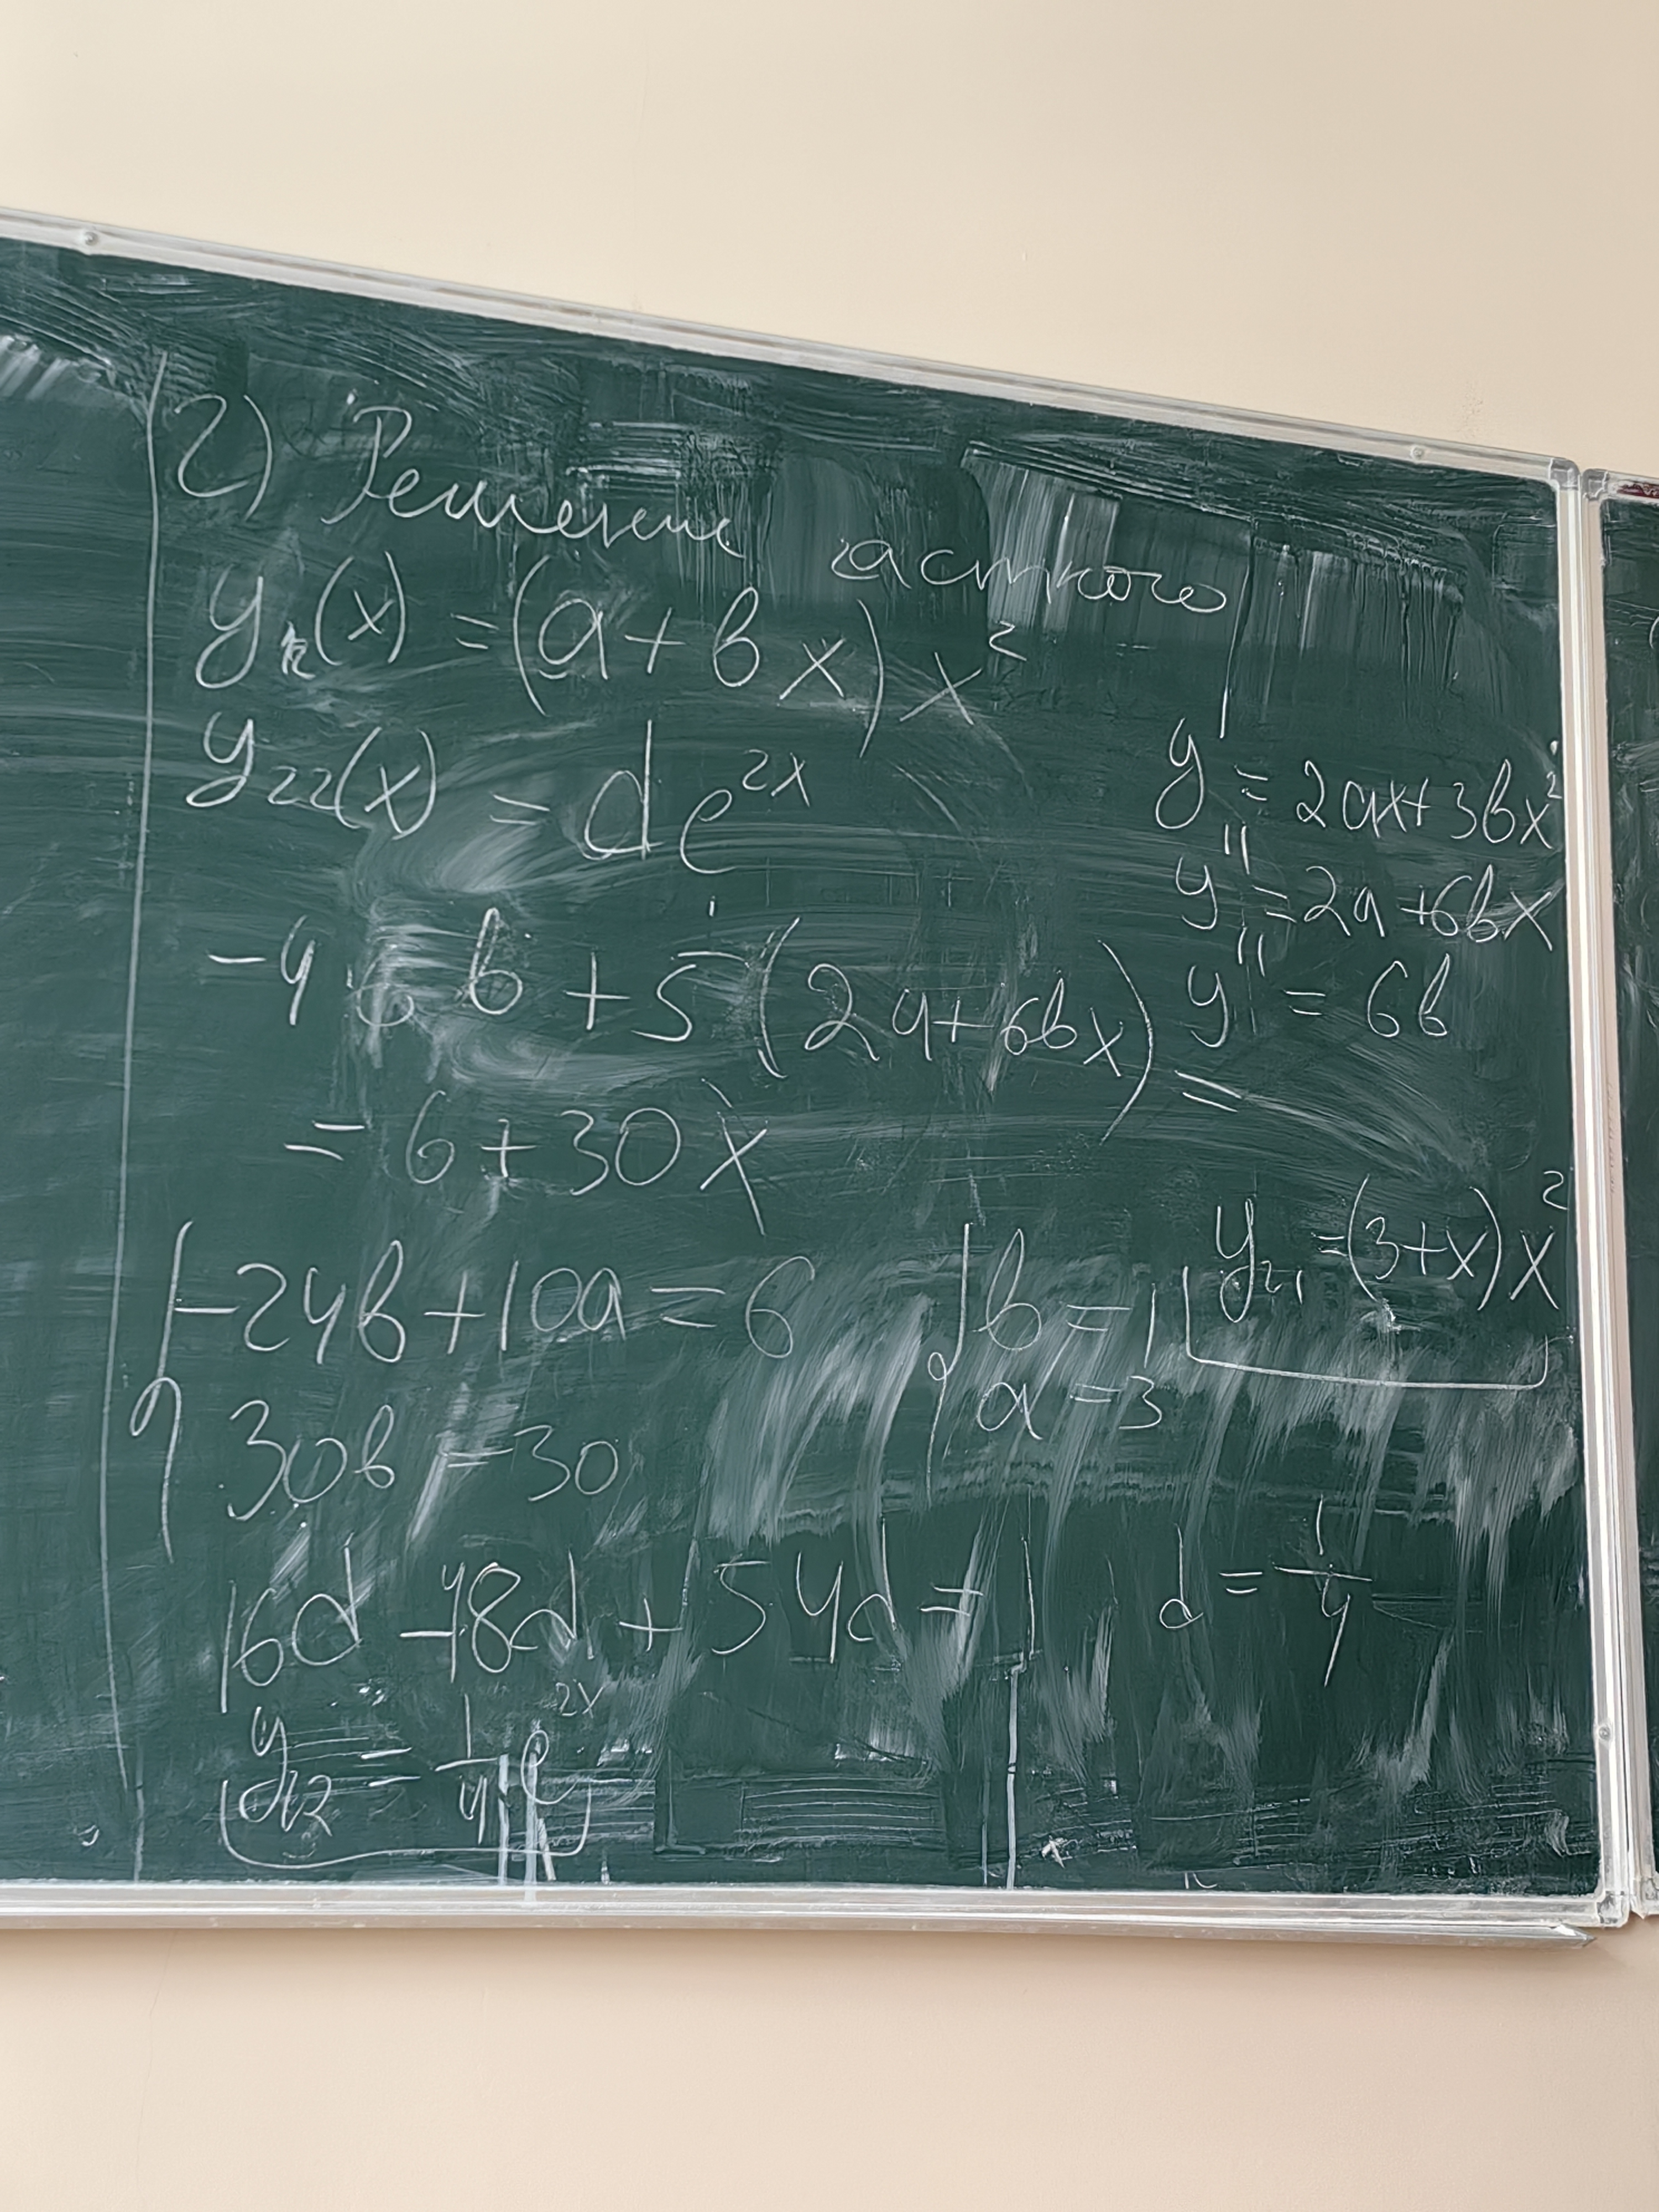 2) Решение частного
y₂₁(x) = (a + bx)x²
y₂₂(x) = de²ˣ
y' = 2ax + 3bx²
y'' = 2a + 6bx
y''' = 6b
-4·6b + 5·(2a + 6bx) =
= 6 + 30x
{ -24b + 10a = 6
30b = 30
{ b = 1
a = 3
y₂₁ = (3 + x)x²
16d - 48d + 5·4d = 1
d = 1/4
y₂₂ = 1/4 e²ˣ